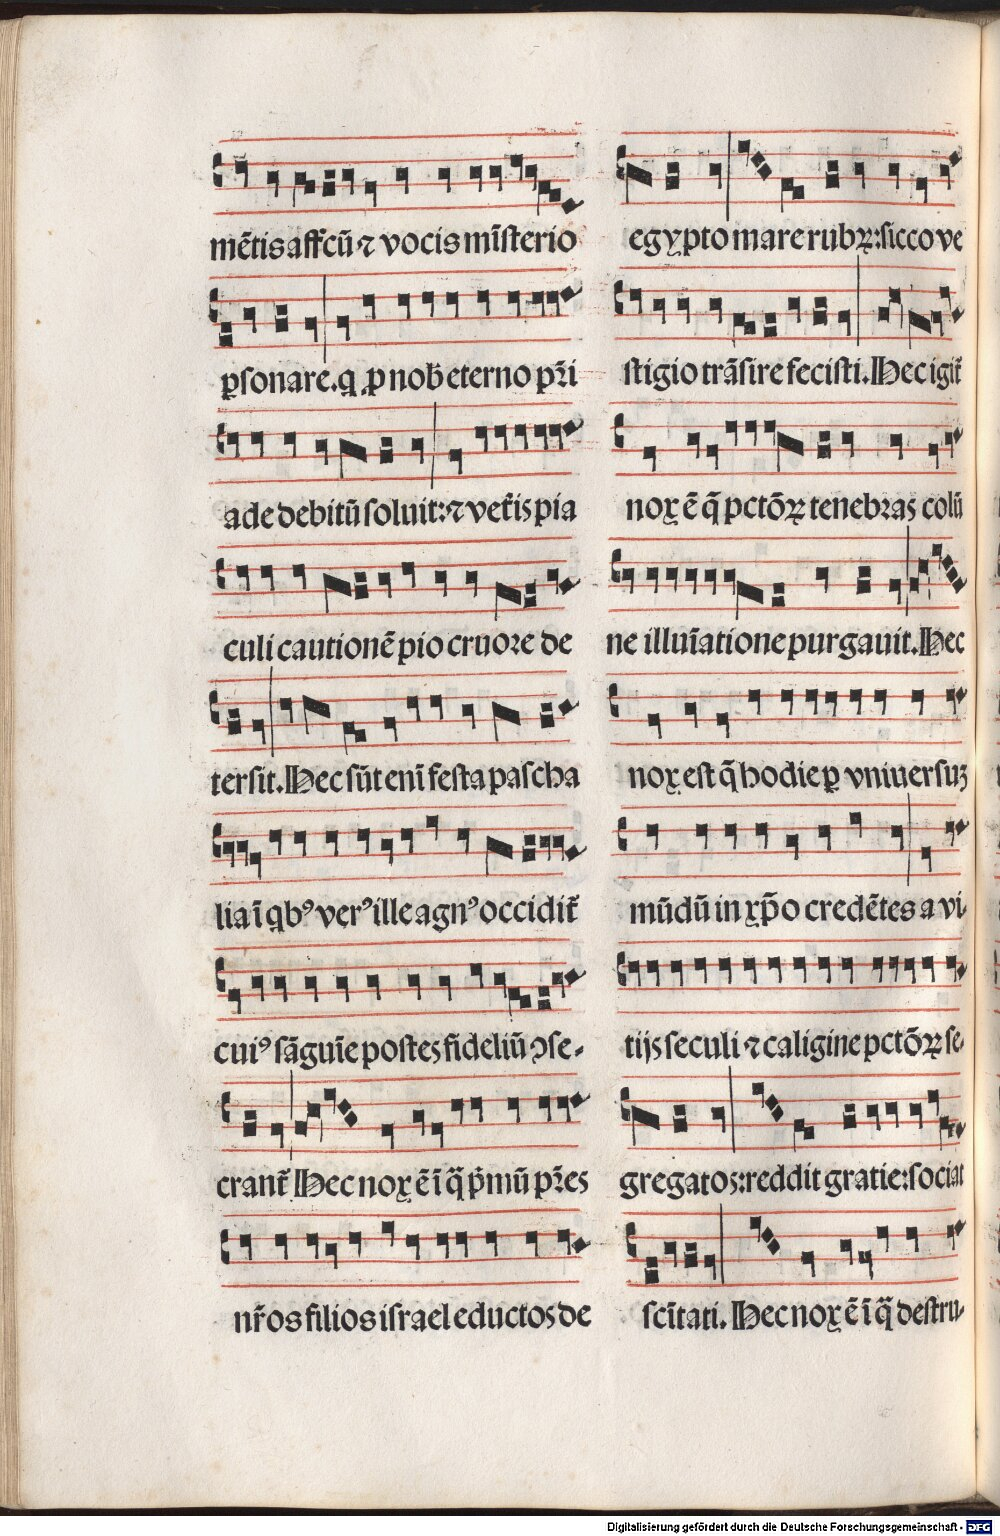 mētis affcū ⁊ vocis mīsterio
ꝑsonare. q̄ ꝓ nob̄ eterno pr̄i
ade debitū soluit: ⁊ vet̄is pia
culi cautionē pio cruore de
tersit. Hec sūt enī festa pascha
lia ī qbꝰ verꝰ ille agnꝰ occidit᷑
cuiꝰ sāguīe postes fideliū ↄse-
crant᷑ Hec nox ē ī q̄ p̄mū pr̄es
nr̄os filios israel eductos de
egypto mare rubꝝ: sicco ve
stigio trāsire fecisti. Hec igit᷑
nox ē q̄ pctōꝝ tenebras colū
ne illuīatione purgauit. Hec
nox est q̄ hodie ꝑ vniuersuꝫ
mūdū in xp̄o credētes a vi-
tijs seculi ⁊ caligine pctōꝝ se-
gregatos: reddit gratie: sociat
scītati. Hec nox ē ī q̄ destru-
Digitalisierung gefördert durch die Deutsche Forschungsgemeinschaft - DFG